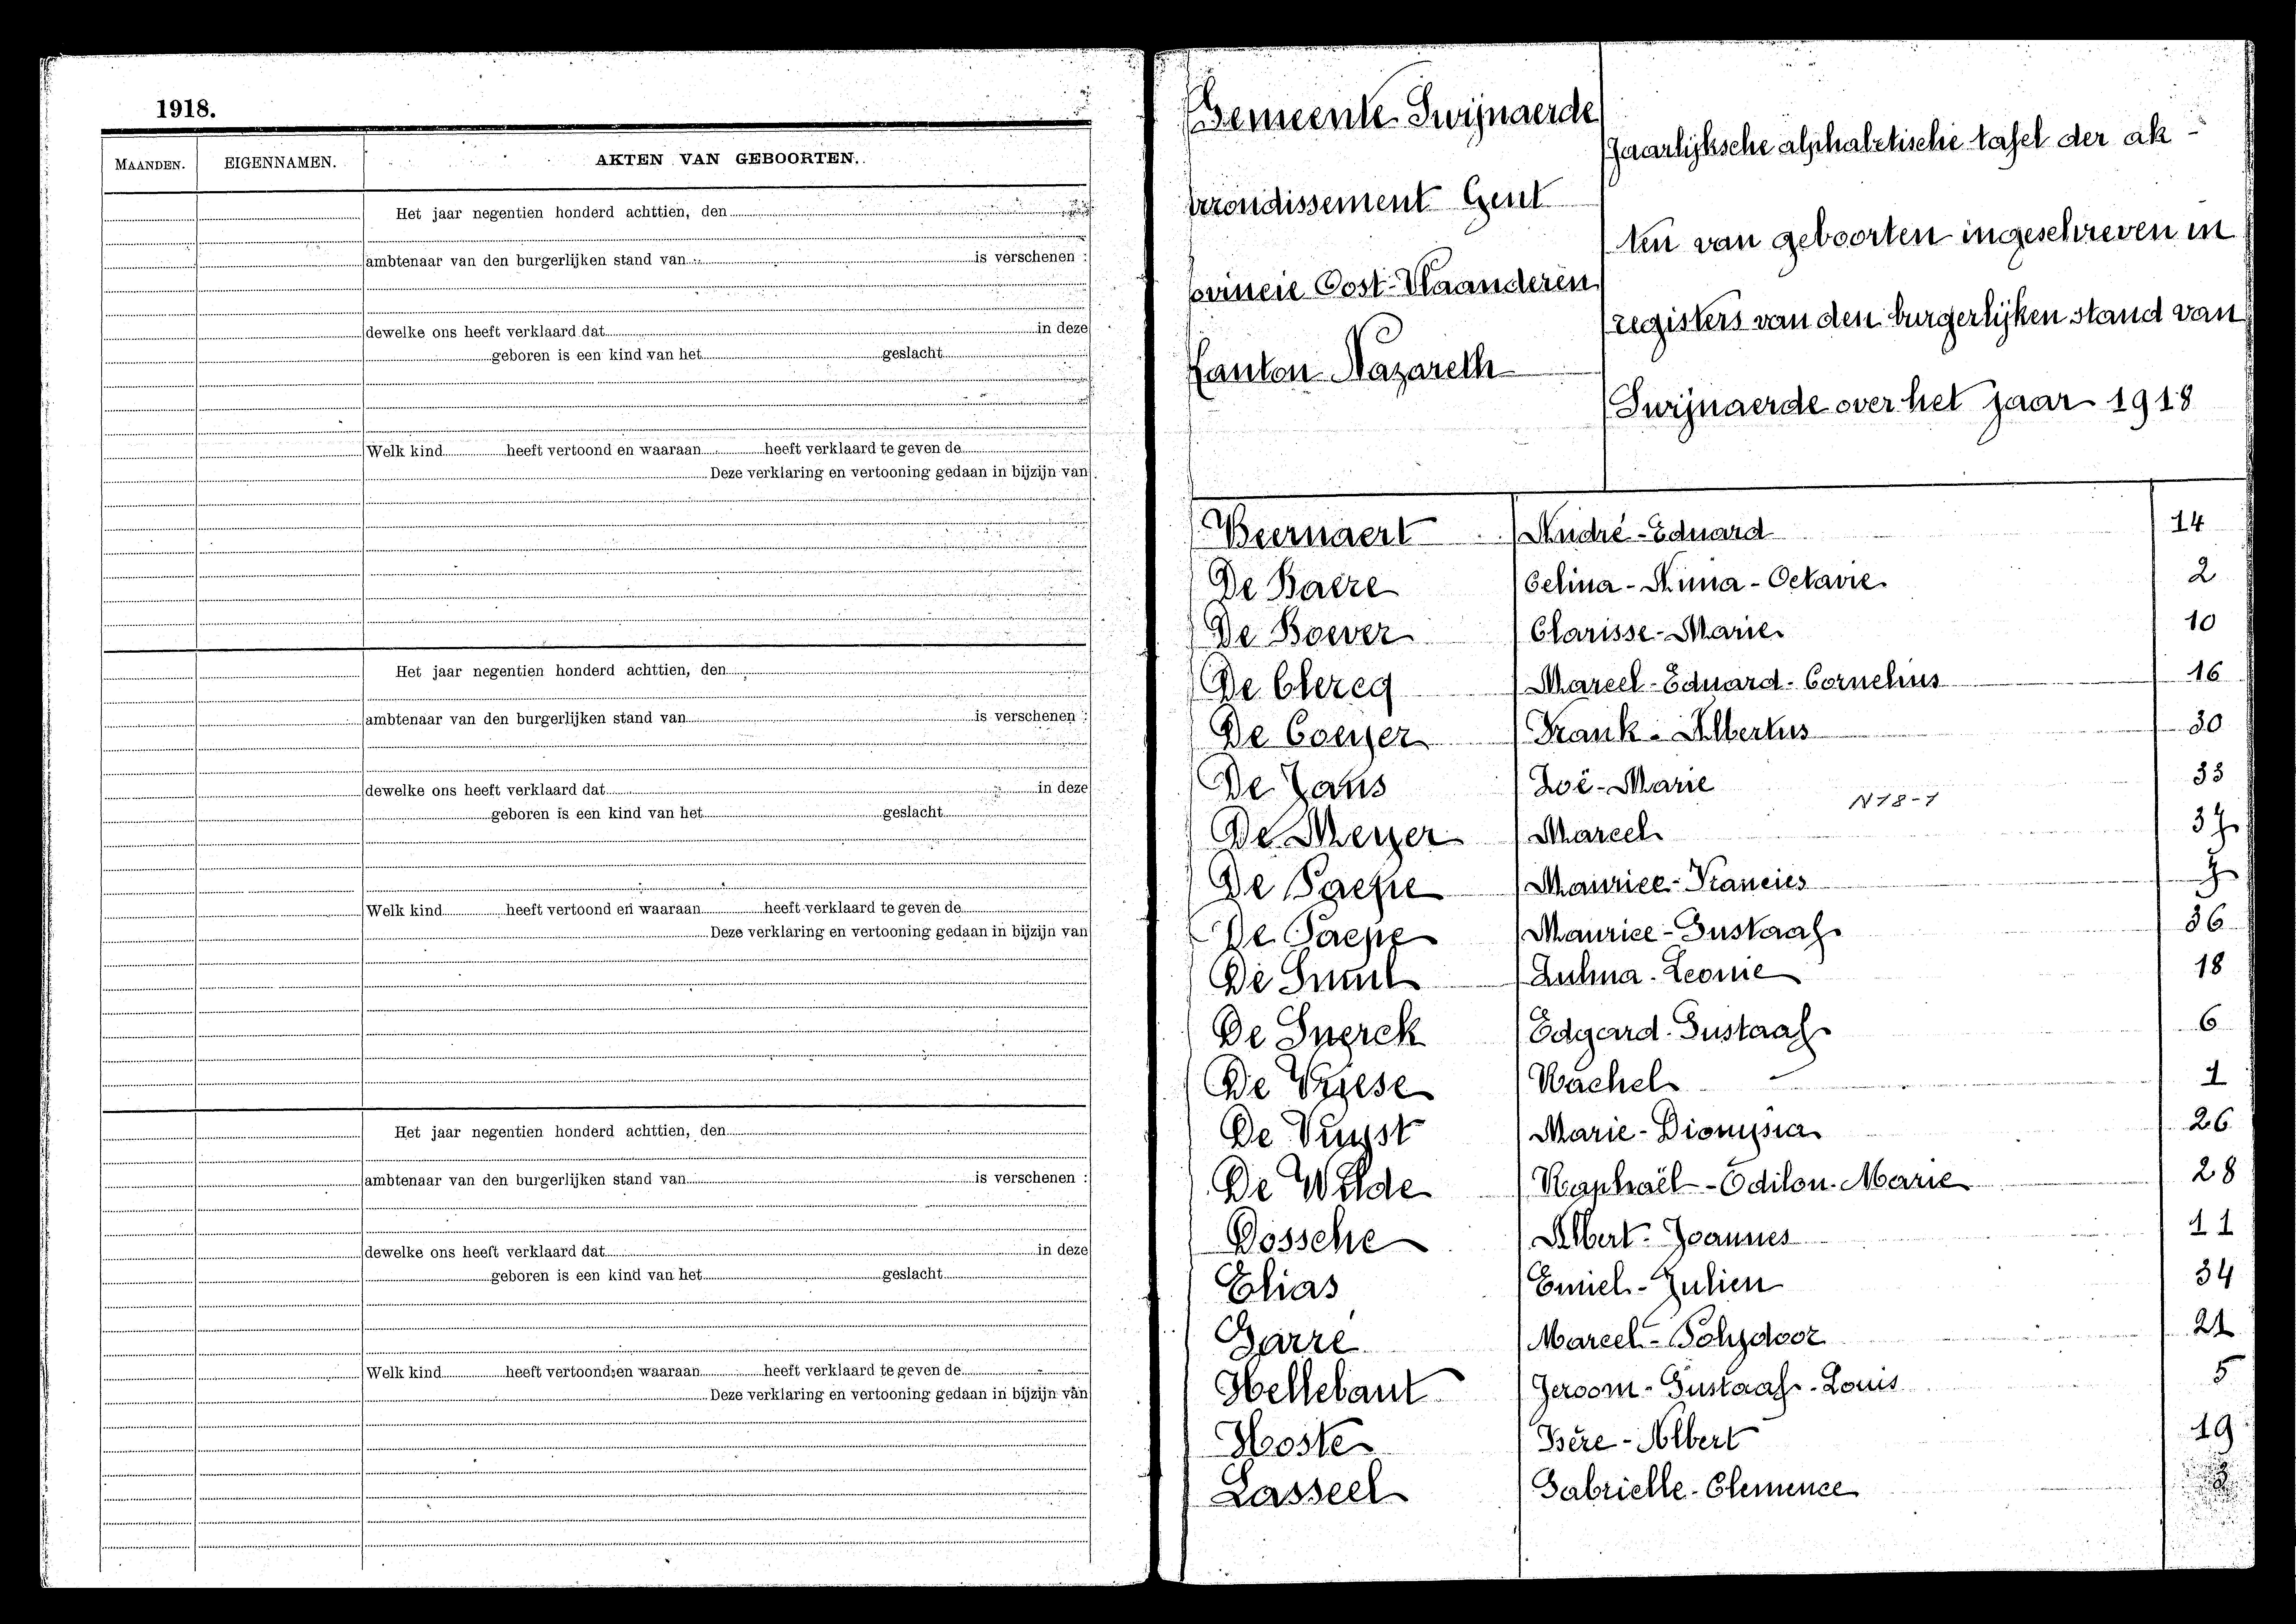 1918.
MAANDEN. EIGENNAMEN. AKTEN VAN GEBOORTEN.
Het jaar negentien honderd achttien, den
ambtenaar van den burgerlijken stand van is verschenen :
dewelke ons heeft verklaard dat in deze
geboren is een kind van het geslacht
Welk kind heeft vertoond en waaraan heeft verklaard te geven de
Deze verklaring en vertooning gedaan in bijzijn van
Het jaar negentien honderd achttien, den
ambtenaar van den burgerlijken stand van is verschenen :
dewelke ons heeft verklaard dat in deze
geboren is een kind van het geslacht
Welk kind heeft vertoond en waaraan heeft verklaard te geven de
Deze verklaring en vertooning gedaan in bijzijn van
Het jaar negentien honderd achttien, den
ambtenaar van den burgerlijken stand van is verschenen :
dewelke ons heeft verklaard dat in deze
geboren is een kind van het geslacht
Welk kind heeft vertoond en waaraan heeft verklaard te geven de
Deze verklaring en vertooning gedaan in bijzijn van
Gemeente Swijnaerde
rrondissement Gent
ovincie Oost-Vlaanderen
Kanton Nazareth
Jaarlijksche alphabetische tafel der ak-
ten van geboorten ingeschreven in
registers van den burgerlijken stand van
Swijnaerde over het jaar 1918
Beernaert André-Eduard 14
De Baere Celina-Anna-Octavie 2
De Boever Clarisse-Marie 10
De Clercq Marcel-Eduard-Cornelius 16
De Coeyer Frank-Albertus 30
De Jans Zoë-Marie 33
N18-1
De Meyer Marcel 37
De Paepe Maurice-Francies 7
De Paepe Maurice-Gustaaf 36
De Smul Zulma-Leonie 18
De Snerck Edgard-Gustaaf 6
De Vriese Rachel 1
De Vuyst Marie-Dionysia 26
De Wilde Raphaël-Odilon-Marie 28
Dossche Albert-Joannes 11
Elias Emiel-Julien 34
Garré Marcel-Polydoor 21
Hellebaut Jeroom-Gustaaf-Louis 5
Hoste Isère-Albert 19
Lasseel Gabrielle-Clemence